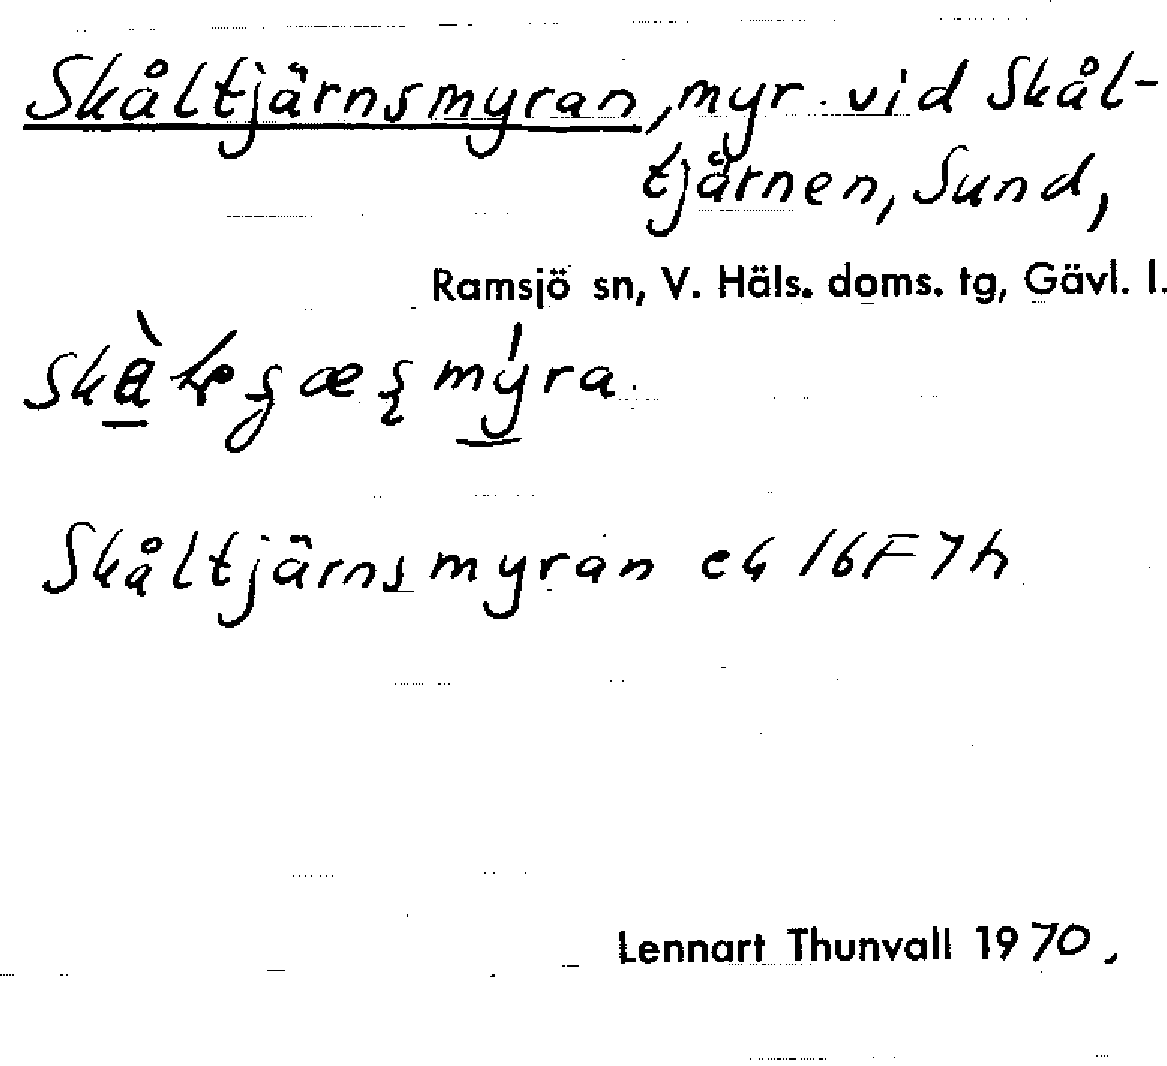 Skåltjärnsmyran, myr vid Skål-
tjärnen, Sund,
Ramsjö sn, V. Häls. doms. tg, Gävl. l.
Skåltjärnsmyran ek 16F7h
Lennart Thunvall 1970.